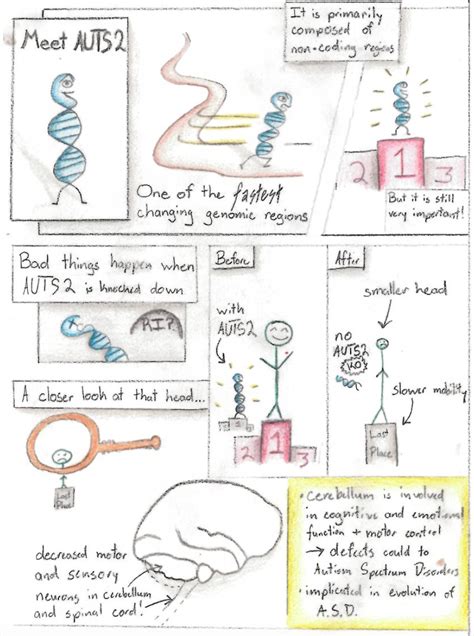 Meet AUTS2
It is primarily
composed of
non-coding regions
One of the fastest
changing genomic regions
2 1 3
But it is still
very important!
Bad things happen when
AUTS2 is knocked down
RIP
Before
with
AUTS2
1
2 1 3
After
smaller head
no
AUTS2
KO
slower mobility
Last
Place
A closer look at that head...
Last
Place
decreased motor
and sensory
neurons in cerebellum
and spinal cord!
• cerebellum is involved
in cognitive and emotional
function + motor control
→ defects could to
Autism Spectrum Disorders
• implicated in evolution of
A.S.D.